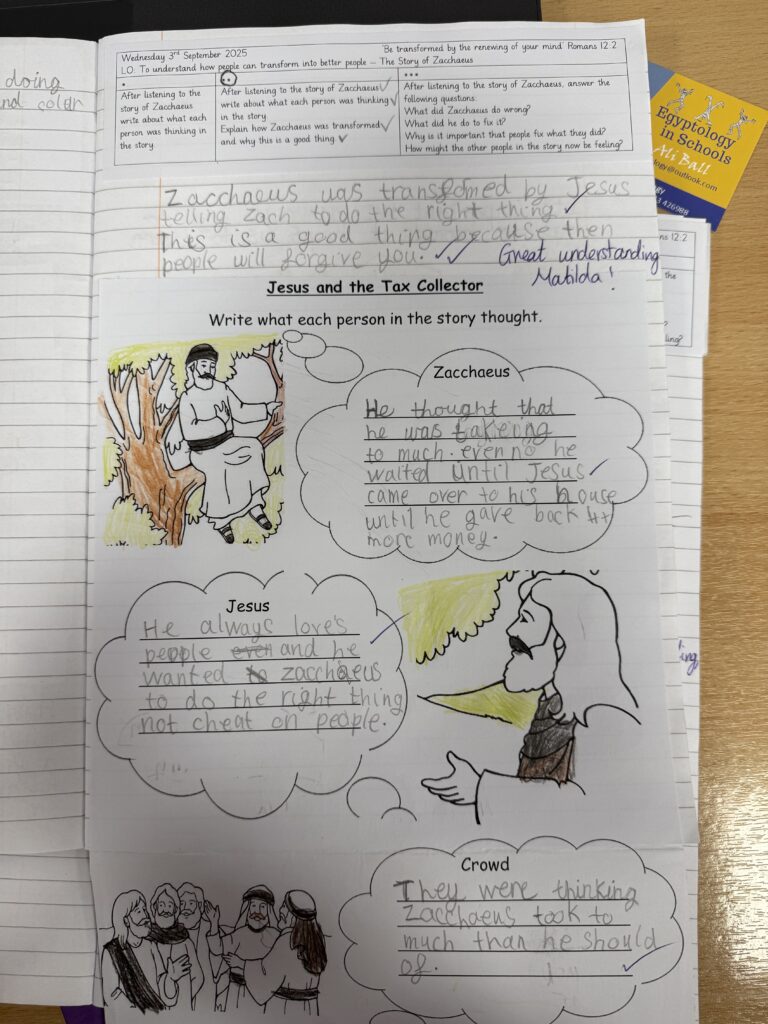 doing
nd color
Wednesday 3rd September 2025 'Be transformed by the renewing of your mind' Romans 12:2
LO: To understand how people can transform into better people – The Story of Zacchaeus
*
After listening to the
story of Zacchaeus
write about what each
person was thinking in
the story.
**
After listening to the story of Zacchaeus
write about what each person was thinking
in the story.
Explain how Zacchaeus was transformed
and why this is a good thing.
***
After listening to the story of Zacchaeus, answer the
following questions:
What did Zacchaeus do wrong?
What did he do to fix it?
Why is it important that people fix what they did?
How might the other people in the story now be feeling?
Zacchaeus was transfomed by Jesus
telling Zach to do the right thing.
This is a good thing because then
people will forgive you.
Great understanding
Matilda!
Jesus and the Tax Collector
Write what each person in the story thought.
Zacchaeus
He thought that
he was takeing
to much. even no he
waited until Jesus
came over to his house
until he gave back 4+
more money.
Jesus
He always love's
people even and he
wanted to zacchaeus
to do the right thing
not cheat on people.
Crowd
They were thinking
Zacchaeus took to
much than he should
of.
Egyptology
in Schools
Ali Ball
logy@outlook.com
426988
ns 12:2
the
ling?
ing,